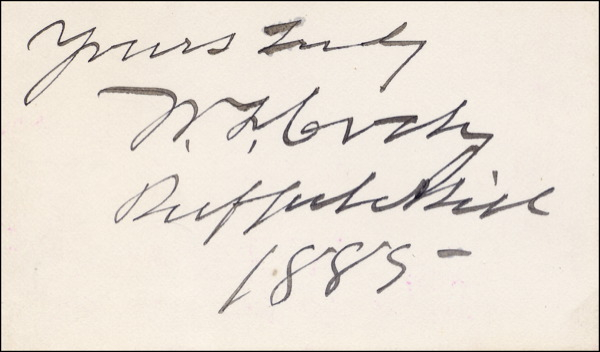 Yours Truly
W. F. Cody
Buffalo Bill
1885-